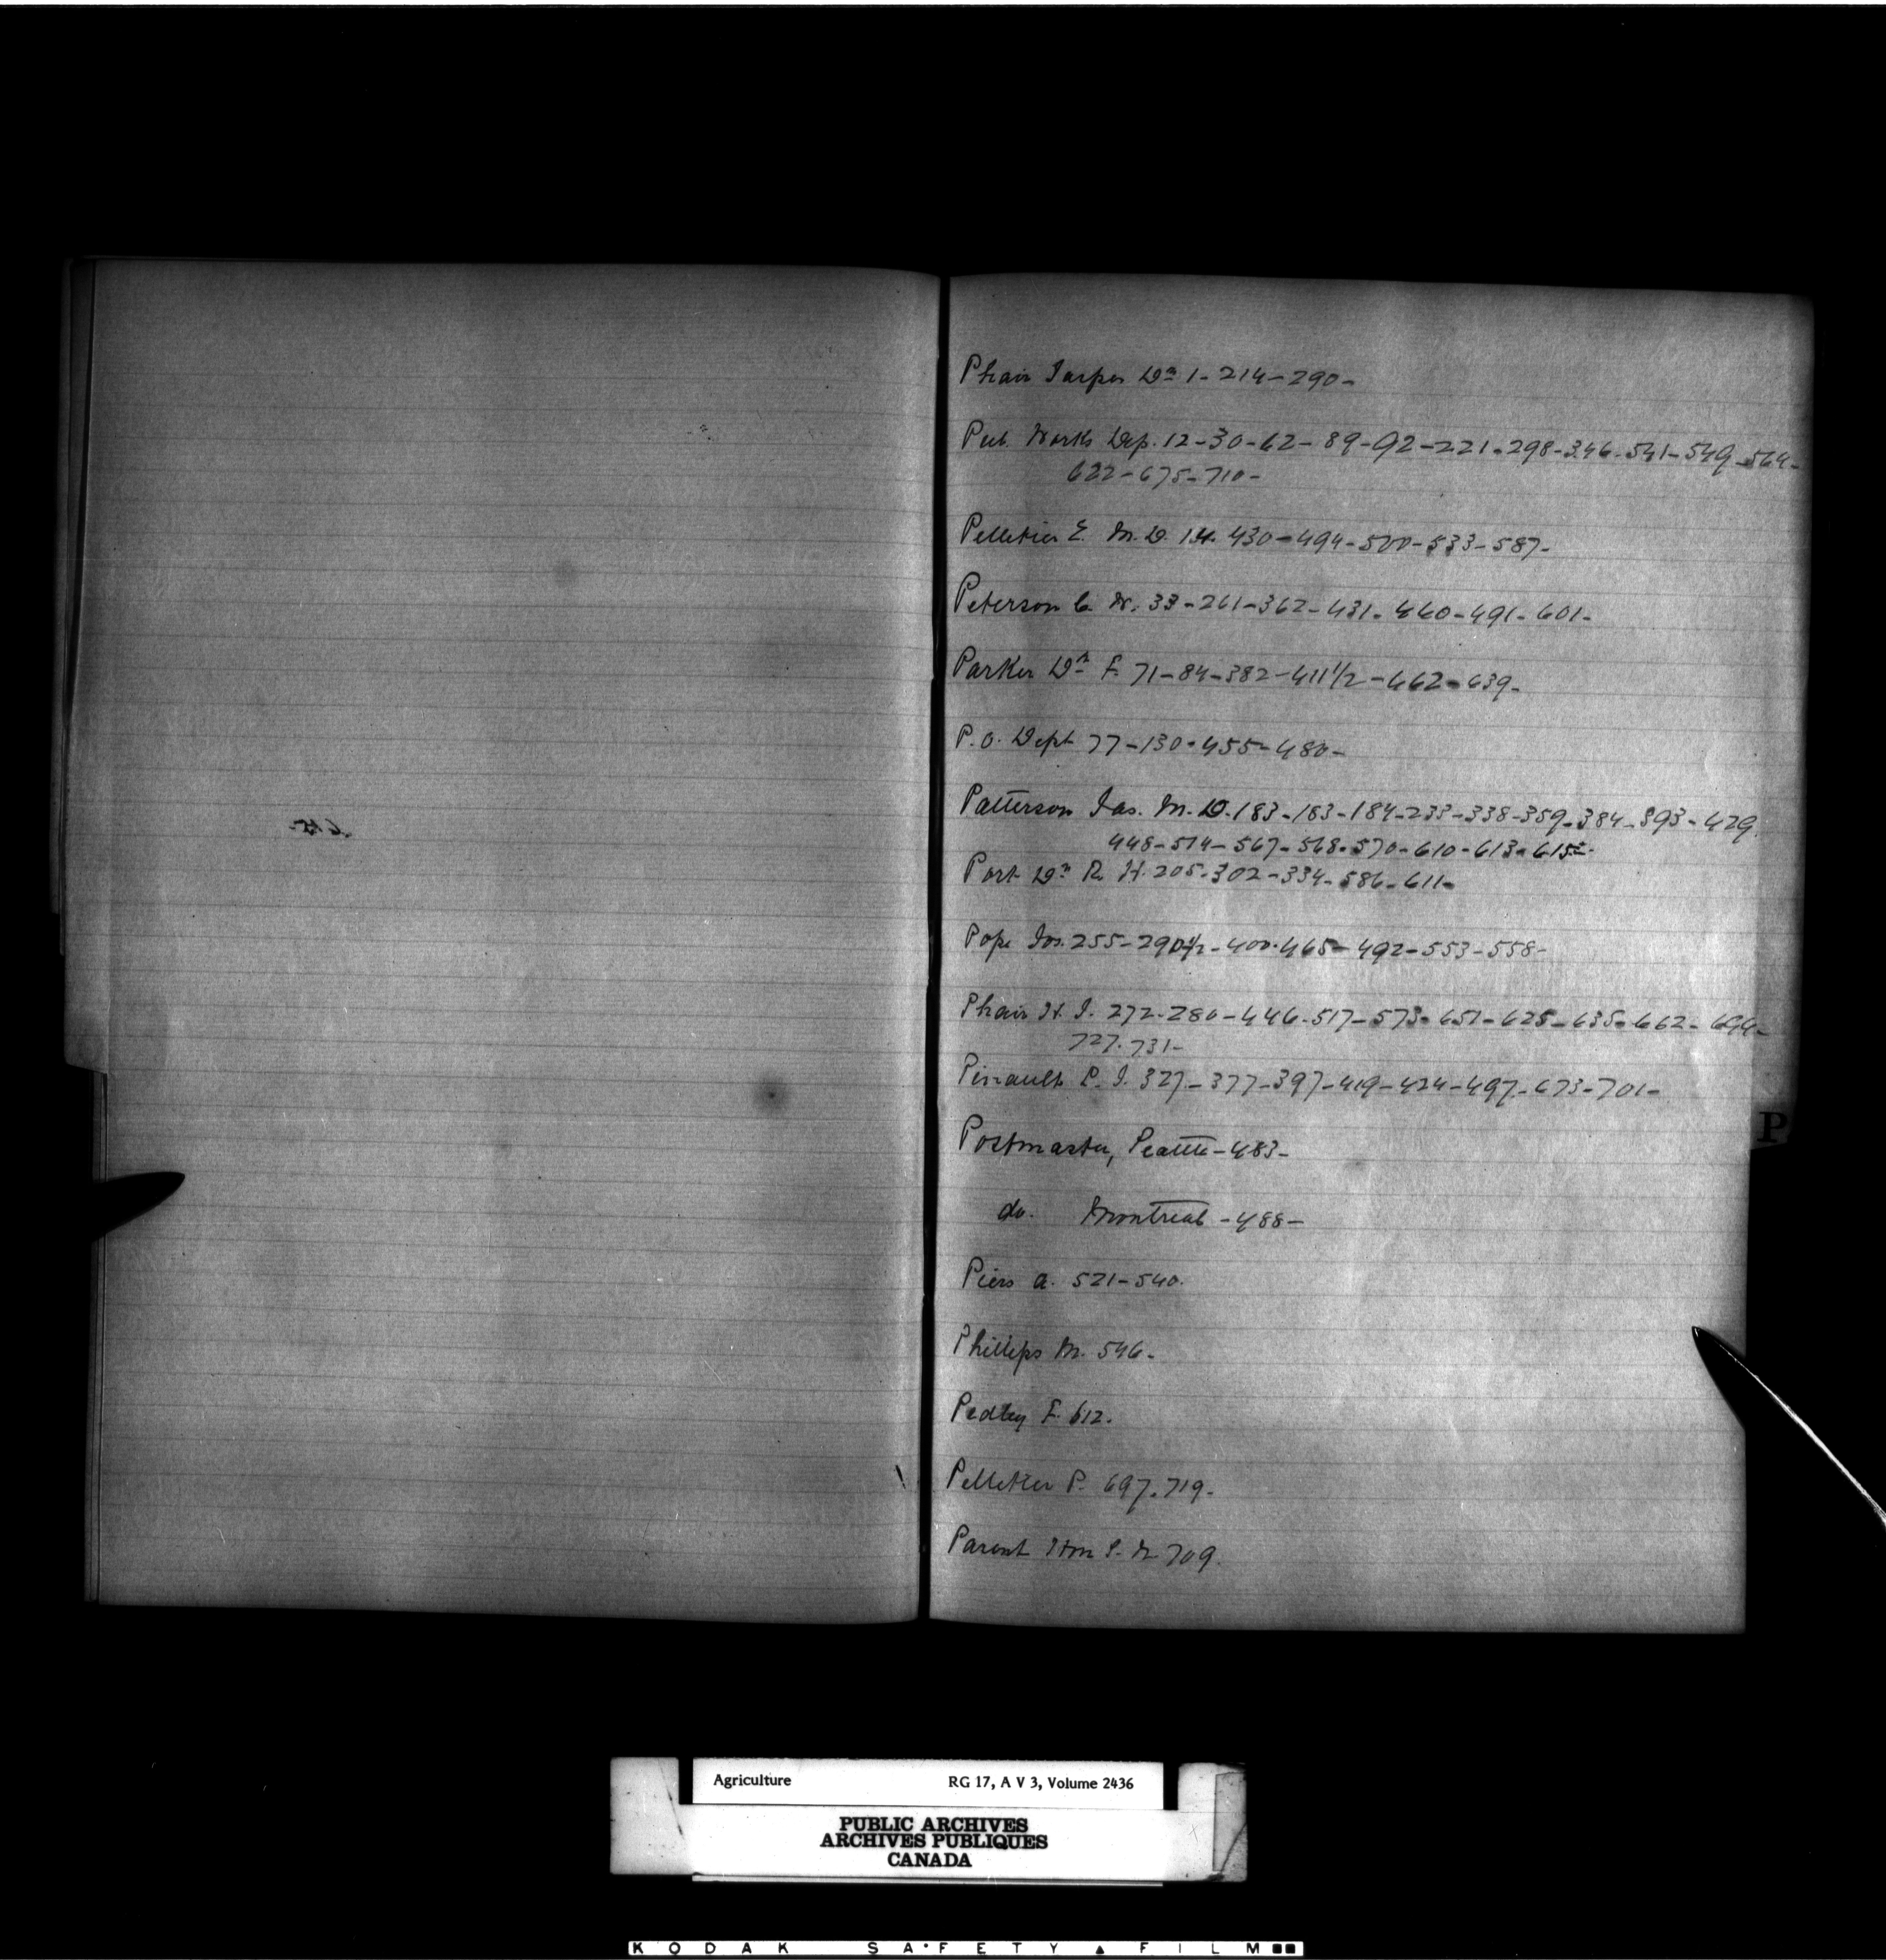 Phair Jasper Dr 1-214-290-
Pub. Works Dep. 12-30-62-89-92-221-298-346-541-549-564-
622-675-710-
Pelletier E. M.D. 14. 430-494-500-533-587-
Peterson C. W. 33-261-362-431-460-491-601-
Parker Dr F. 71-84-382-411 1/2-462-639-
P.O. Dept 77-130-455-480-
Patterson Jas. M.D. 183-183-184-233-338-359-384-393-429
448-514-567-568-570-610-613-615-
Port Dr R. H. 205-302-334-586-611-
Pope Jos. 255-290 1/2-400-465-492-553-558-
Phair H. J. 272-280-446-517-573-651-625-635-662-694-
727-731-
Pinault P. J. 327-377-397-419-424-497-673-701-
P
Postmaster, Seattle-483-
do. Montreal-488-
Piers A. 521-540.
Phillips M. 546-
Pedley F. 612.
Pelletier P. 697-719-
Parent Hon S. N. 709.
Agriculture RG 17, A V 3, Volume 2436
PUBLIC ARCHIVES
ARCHIVES PUBLIQUES
CANADA
KODAK SAFETY FILM